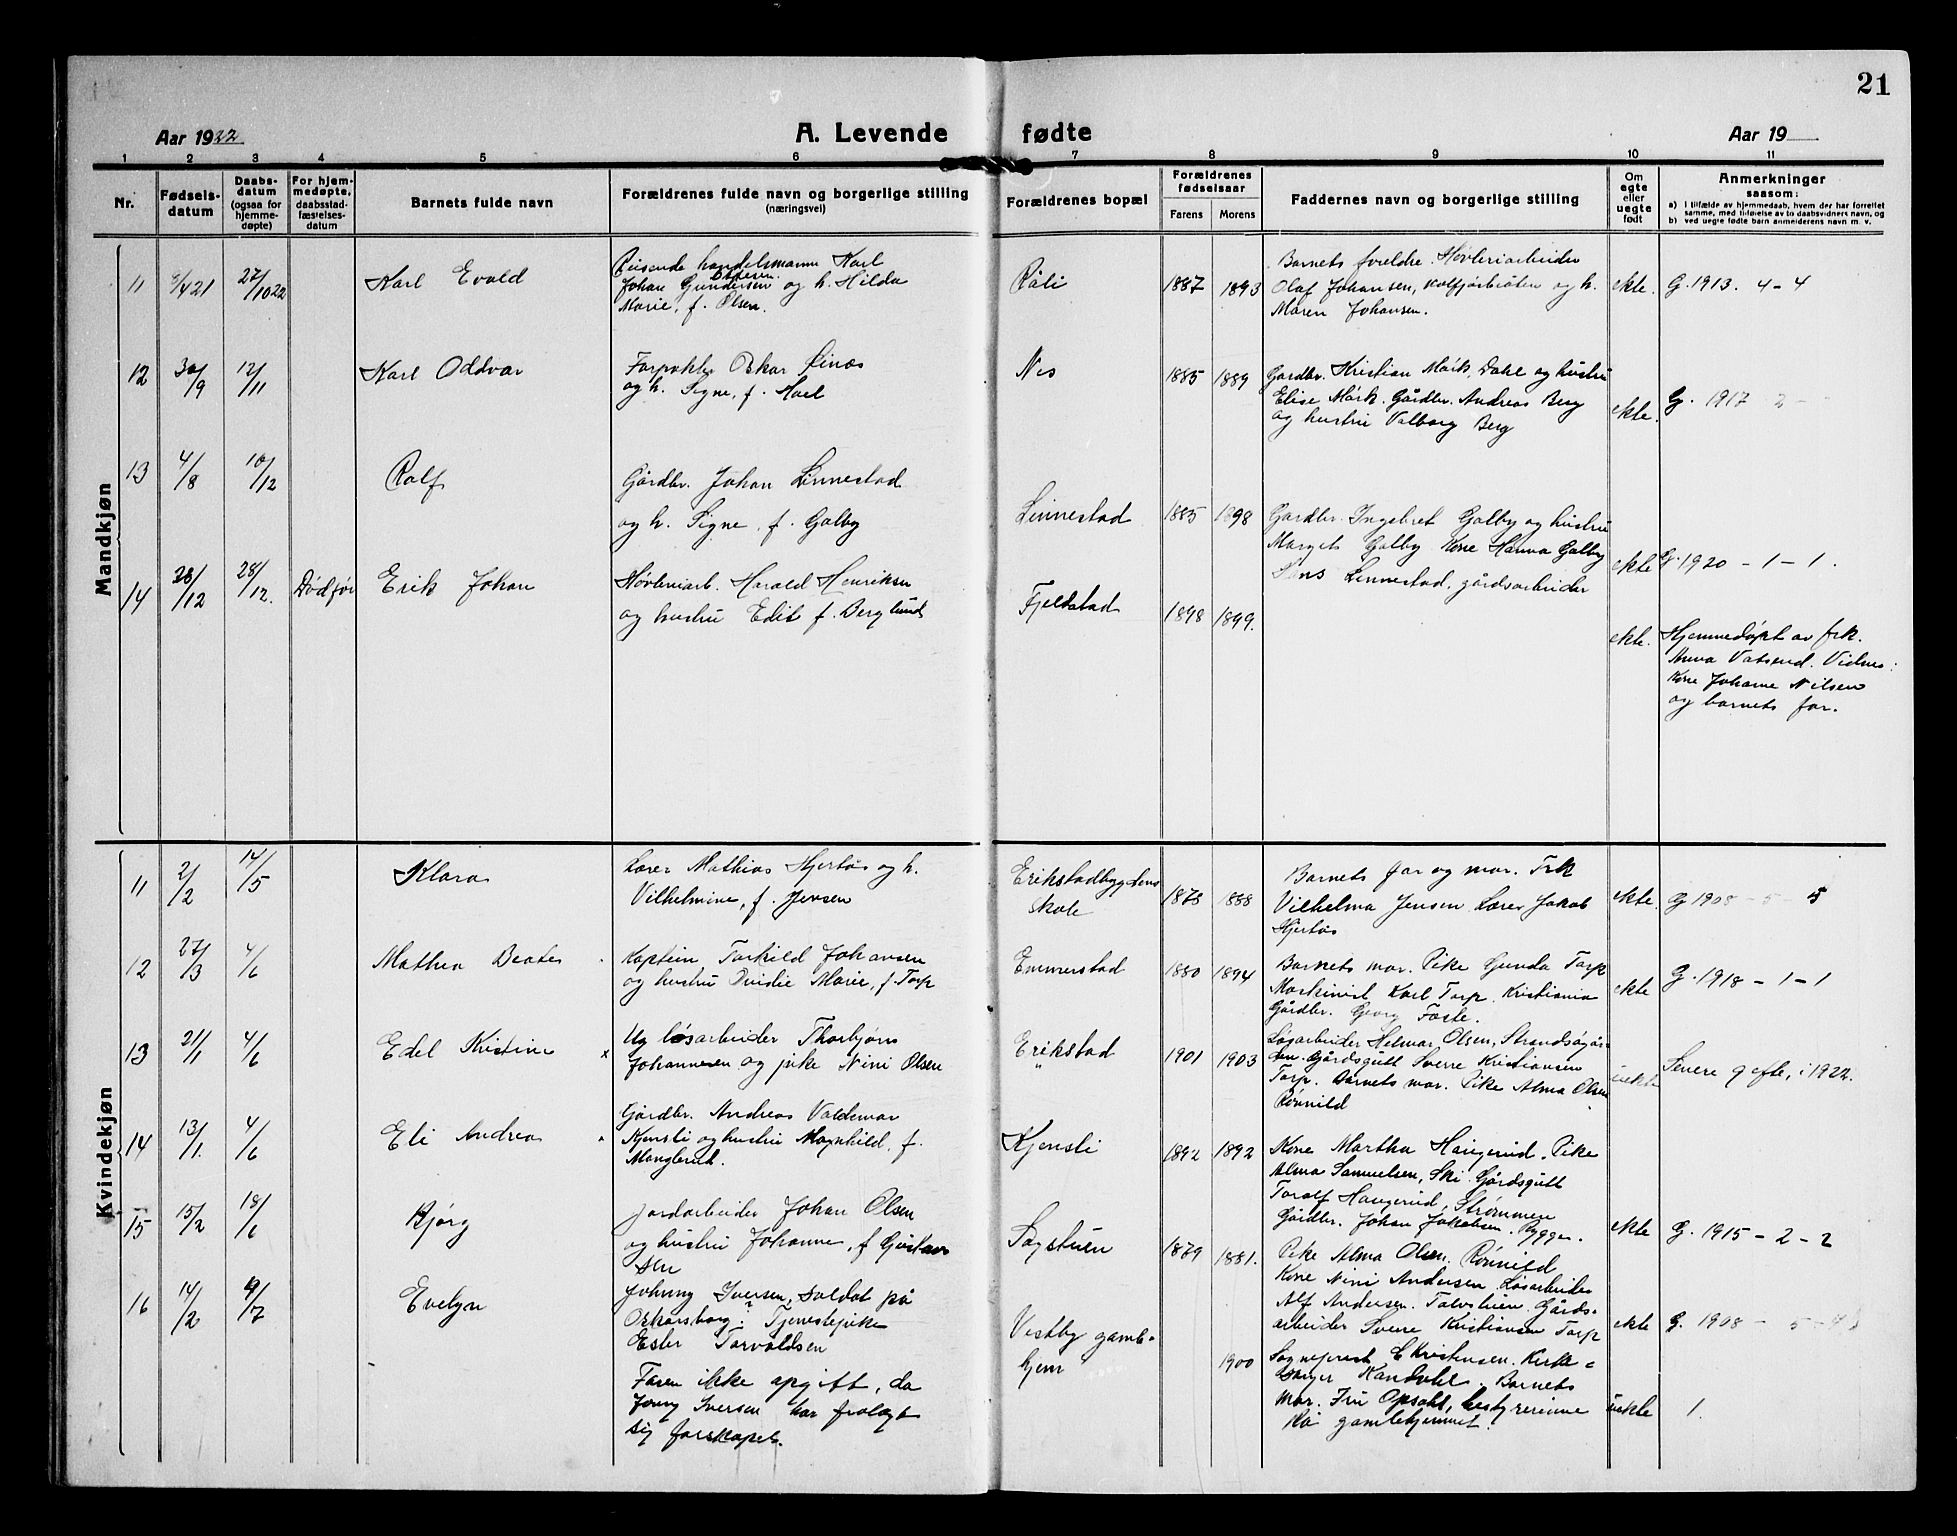 21
Aar 1922
A. Levende fødte
Aar 19
1 2 3 4 5 6 7 8 9 10 11
Nr.
Fødselsdatum
Daabsdatum (ogsaa for hjemmedøpte)
For hjemmedøpte, daabsstadfæstelsesdatum
Barnets fulde navn
Forældrenes fulde navn og borgerlige stilling
(næringsvei)
Forældrenes bopæl
Forældrenes fødselsaar
Farens Morens
Faddernes navn og borgerlige stilling
Om egte eller uegte født
Anmerkninger
saasom:
a) I tilfælde av hjemmedaab, hvem der har forrettet samme, med tilføielse av to daabsvidners navn, og
b) ved uegte fødte barn anmelderens navn m. v.
Mandkjøn
11 27/10 22 Karl Evald
Reisende handelsmann Karl
Johan Gundersen og h. Hilda
Marie, f. Olsen.
1887 1893
Barnets foreldre. Høvleriarbeider
Olaf Johansen, og h.
Maren Johansen.
ekte. G. 1913. 4-4
12 30/9 12/11 Karl Oddvar
Forpakter Oskar
og h. Signe, f. Hoel
Nes 1885 1889
Gardbr. Kristian Mørk, Dahl og hustru
Elise Mørk. Gårdbr. Andreas Berg
og hustru Valborg Berg
ekte. G. 1917 2 -
13 4/8 10/12 Rolf
Gårdbr. Johan Linnestad
og h. Signe, f. Galby
Linnestad 1885 1898
Gardbr. Ingebret Galby og hustru
Margit Galby Kone Hanna Galby
Linnestad, gårdsarbeider
ekte G. 1920 - 1 - 1.
14 28/12 28/12. Død før Erik Johan
Høvleriarb. Harald Henriksen
og hustru Edit f. Berglund
Fjellstad 1898 1899.
ekte. Hjemmedøpt av frk.
Anna Vatsend. Vidner:
Kone Johanne Nilsen
og barnets far.
Kvindekjøn
11 2/2 14/5 Klara
Lærer Mathias Hjertøs og h.
Vilhelmine, f. Jensen
Erikstadbygdens
skole 1878 1888
Barnets far og mor. Frk
Vilhelma Jensen Lærer Jakob
Hjertøs
ekte. G 1908 - 5 - 5
12 27/3 4/6 Mathea Beate
Kaptein Torkild Johansen
og hustru Marie, f. Torp
Emmerstad 1880 1894
Barnets mor. Pike Gunda Torp
Maskinist Karl Torp. Kristiania
Gårdbr. Georg Fosle.
ekte G. 1918 - 1 - 1
13 21/1 4/6 Edel Kristine x
Ug løsarbeider Thorbjørn
Johannesen og pike Nini Olsen
Erikstad
" 1901 1903
Løsarbeider Helmar Olsen, Strandsøgår-
den. Gårdsgutt Sverre Kristiansen
Torp. Barnets mor. Pike Alma Olsen
Rønnild
uekte Senere gifte, i 1922.
14 13/1. 4/6 Eli Andrea x
Gårdbr. Andreas Valdemar
Kjensli og hustru Magnhild, f.
Manglerud.
Kjensli 1892 1892
Kone Martha Haugerud. Pike
Alma Samuelsen, Ski. Gårdsgutt
Toralf Haugerud, Strømmen
Gårdbr. Johan Jakobsen. Rygge.
ekte G. 1915 - 2 - 2
15 15/2 18/6 Bjørg
Jordarbeider Johan Olsen
og hustru Johanne, f Gustav
sen
Sagstuen 1879 1881.
Pike Alma Olsen. Rønnild
Kone Nini Andersen. Løsarbeider
Alf Andersen. Gårds-
arbeider Sverre Kristiansen Torp
ekte G. 1908 - 5 - 4
16 14/2 9/7 Evelyn
Johnny Iversen, soldat på
Oskarsborg? Tjenestepike
Ester Torvaldsen
Faren ikke opgitt, da
Jonny Iversen har fralagt
sig farskapet.
Vestby gamle-
hjem 1900
Sogneprest E Kristensen. Kirke-
sanger Kandahl. Barnets
mor. Fru Opsahl, bestyrerinne
på gamlehjemmet.
uekte 1.